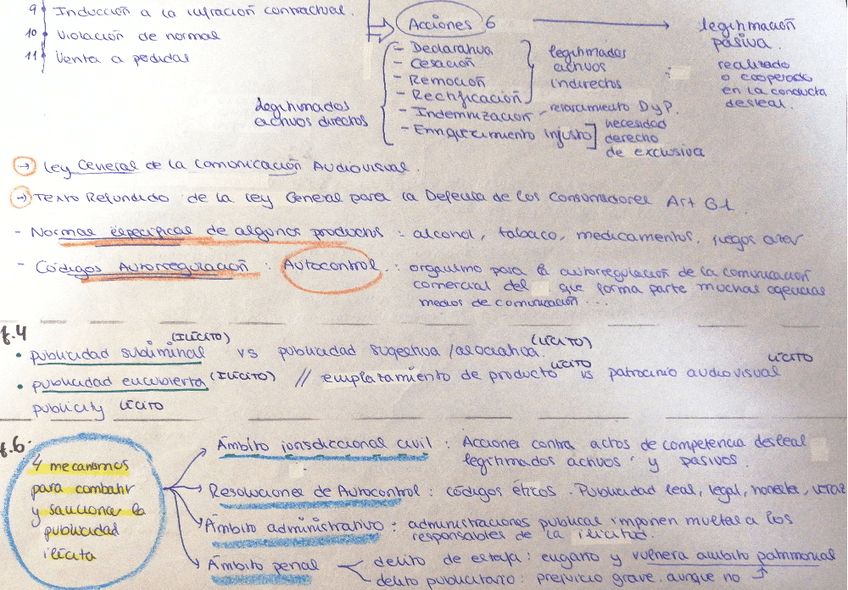 9 Inducción a la infracción contractual.
10 Violación de normas
11 Venta a pédidas
Acciones 6
legitimación
pasiva.
realizado
o cooperado
en la conducta
desleal.
- Declarativa
- Cesación
- Remoción
- Rectificación
- Indemnización - resarcimiento DyP.
- Enriquecimiento Injusto
legitimados
activos
indirectos
necesidad
derecho
de exclusiva
legitimados
activos directos
→ Ley General de la Comunicación Audiovisual.
→ Texto Refundido de la Ley General para la Defensa de los Consumidores Art 61.
- Normas específicas de algunos productos : alcohol, tabaco, medicamentos, juegos azar
- Códigos Autorregulación : Autocontrol : organismo para la autorregulación de la comunicación
comercial del que forma parte muchas agencias
medios de comunicación ...
t.4
• publicidad subliminal (ILÍCITO) vs publicidad sugestiva /asociativa. (LÍCITO)
• publicidad encubierta (ILÍCITO) // emplazamiento de producto LÍCITO vs patrocinio audiovisual LÍCITO
publicity LÍCITO
t.6:
4 mecanismos
para combatir
y sancionar la
publicidad
ilícita
Ámbito jurisdiccional civil : Acciones contra actos de competencia desleal
legitimados activos y pasivos.
Resoluciones de Autocontrol : códigos éticos. Publicidad leal, legal, honesta,
Ámbito administrativo : administraciones publicas imponen multas a los
responsables de la ilicitud.
Ámbito penal
delito de estafa : engaño y vulnera ámbito patrimonial
delito publicitario : prejuicio grave, aunque no